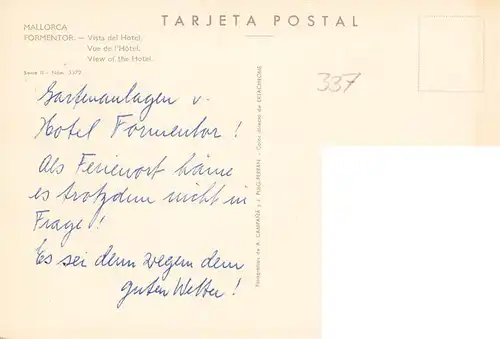 TARJETA POSTAL
MALLORCA
FORMENTOR. — Vista del Hotel.
Vue de l'Hôtel.
View of the Hotel.
Serie II - Núm. 3372
337
Gartenanlagen v.
Hotel Formentor!
Als Ferienort käme
es trotzdem nicht in
Frage!
Es sei denn wegen dem
guten Wetter!
Fotografías de A. CAMPAÑÁ y J. PUIG-FERRÁN.